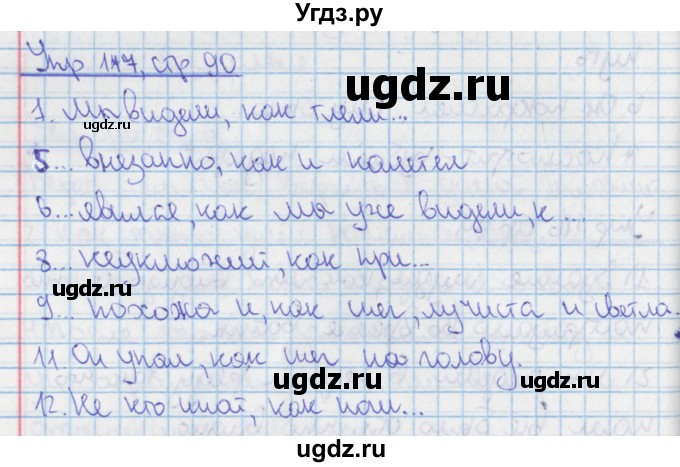 Угдз.ру
Упр 147, стр 90
ugdz.ru
1. Мы видели, как тлели...
ugdz.ru
5... внезапно, как и налетел
ugdz.ru
6... явился, как мы уже видели, к ...
8... неуклюжий, как при...
ugdz.ru
9... похожа и, как снег, лучиста и светла.
11. Он упал, как снег на голову.
ugdz.ru
12. Не кто иной, как пош...
ugdz.ru